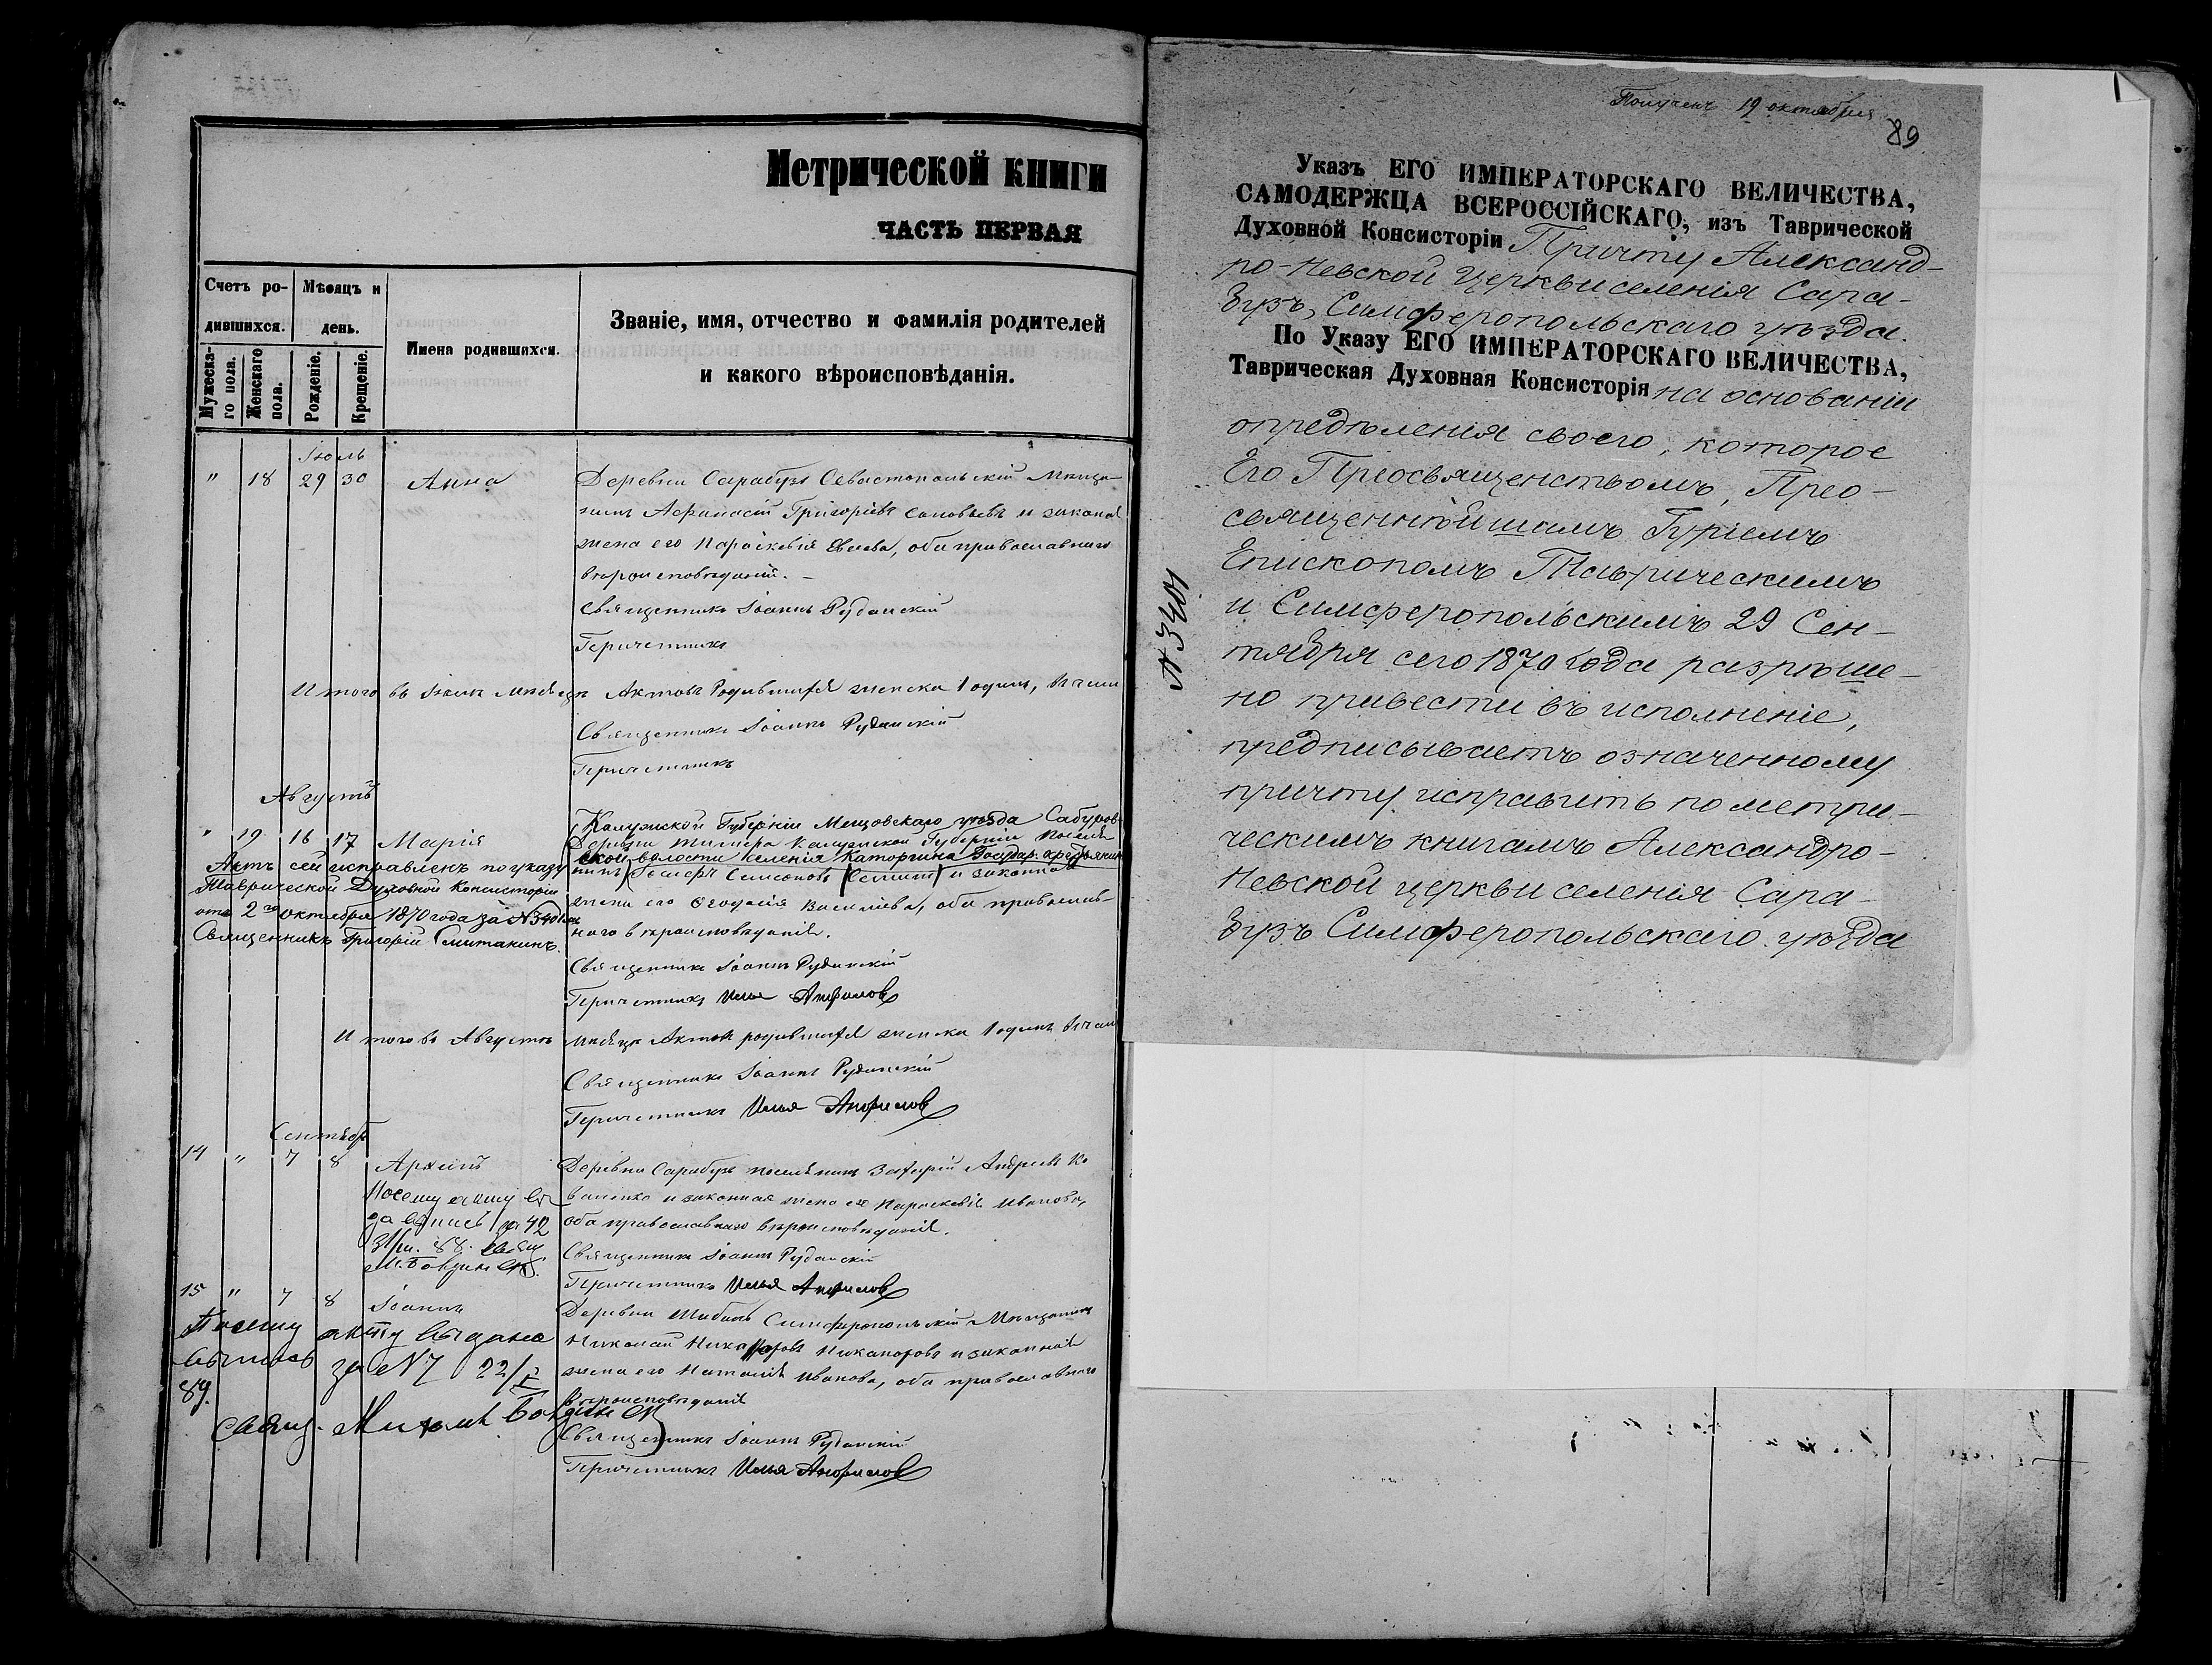 Метрической книги
ЧАСТЬ ПЕРВАЯ
Счетъ ро-
дившихся.
Мѣсяцъ и
день.
Мужеска-
го пола.
Женскаго
пола.
Рожденіе.
Крещеніе.
Имена родившихся.
Званіе, имя, отчество и фамилія родителей
и какого вѣроисповѣданія.
Іюль
" 18 29 30 Анна Деревни Сарабузъ Севастопольскій Мѣща-
нинъ Афанасій Григоріевъ Соловьевъ и законная
жена его Параскевія, оба православнаго
вѣроисповѣданія. –
Священникъ Іоаннъ Руданскій
Причетникъ
Итого въ Іюлѣ мѣсяцѣ Актовъ Родившихся женска 1 одинъ,
Священникъ Іоаннъ Руданскій
Причетникъ
Августъ
Калужской Губерніи Мещовскаго уѣзда Сабуров-
" 19 16 17 Марія Деревни Калужской Губерніи
Актъ сей исправленъ по указу ской волости селенія Каторгина Государ. крестьян
нинъ Симеоновъ и законная
Таврической Духовной Консисторіи
жена его Феодосія Василіева, оба православ-
отъ 2го октября 1870 года за N 3401мъ
наго вѣроисповѣданія.
Священникъ Григорій Смитанинъ.
Священникъ Іоаннъ Руданскій
Причетникъ Илья Анфилов
Итого въ Августѣ мѣсяцѣ Актовъ родившихся женска 1 одинъ
Священникъ Іоаннъ Руданскій
Причетникъ Илья Анфилов
Сентябрь
14 " 7 8 Архипъ Деревни Сарабузъ поселянинъ Захарій Андреевъ Ко
По сему акту вы- валенко и законная жена его Параскевія Иванова,
да выпись за 42 оба православнаго вѣроисповѣданія.
88. Свящ Священникъ Іоаннъ Руданскій
Причетникъ Илья Анфилов
15 " 7 8 Іоаннъ Деревни Симферопольскій Мѣщанинъ
По сему акту выдана Николай Никаноровъ и законная
выпись за N7 22/I жена его Наталія Иванова, оба православнаго
89. вѣроисповѣданія
Свящ. Михаил
Священникъ Іоаннъ Руданскій
Причетникъ Илья Анфилов
Полученъ 19 октября
89
Указъ ЕГО ИМПЕРАТОРСКАГО ВЕЛИЧЕСТВА,
САМОДЕРЖЦА ВСЕРОССІЙСКАГО, изъ Таврической
Духовной Консисторіи Причту Александ-
ро-Невской церкви селенія Сара-
бузъ, Симферопольскаго уѣзда.
По Указу ЕГО ИМПЕРАТОРСКАГО ВЕЛИЧЕСТВА,
Таврическая Духовная Консисторія на основаніи
опредѣленія своего, которое
Его Преосвященствомъ, Прео-
священнѣйшимъ Гуріемъ
Епископомъ Таврическимъ
и Симферопольскимъ 29 Сен-
тября сего 1870 года разрѣше-
но привести въ исполненіе,
предписываетъ означенному
причту исправить по метри-
ческимъ книгамъ Александро-
Невской церкви селенія Сара-
бузъ Симферопольскаго уѣзда
N 3401